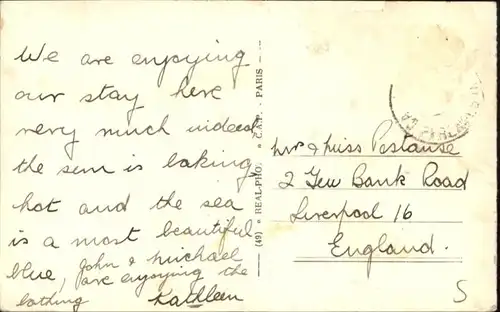 We are enjoying
our stay here
very much indeed
the sun is baking
hot and the sea
is a most beautiful
blue, John & Michael
are enjoying the
bathing Kathleen
(49) REAL-PHOTO C.A.P. - PARIS
Mrs & Miss Postance
2 Yew Bank Road
Liverpool 16
England.
5